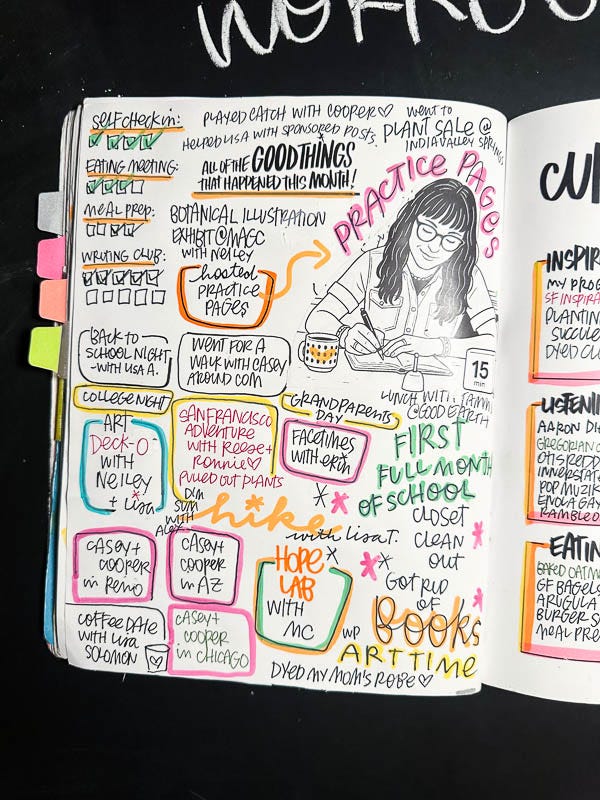 SELF CHECK IN:
EATING MEETING:
MEAL PREP:
WRITING CLUB:
PLAYED CATCH WITH COOPER♡
HELPED LISA WITH SPONSORED POSTS.
WENT TO
PLANT SALE @
INDIAN VALLEY SPRINGS
ALL OF THE GOOD THINGS
THAT HAPPENED THIS MONTH!
PRACTICE PAGES
BOTANICAL ILLUSTRATION
EXHIBIT @ MAGC
WITH NEILEY
hosted
PRACTICE
PAGES
15
min
BACK TO
SCHOOL NIGHT
-WITH LISA A.
WENT FOR A
WALK WITH CASEY
AROUND COM
LUNCH WITH
@ GOOD EARTH
COLLEGE NIGHT
GRANDPARENTS
DAY
ART
Deck-O
WITH
NEILEY
+ Lisa
SAN FRANCISCO
ADVENTURE
WITH REESE +
RONNIE♡
PULLED OUT PLANTS
FACETIMES
WITH erin
FIRST
FULL MONTH
OF SCHOOL
DIM
SUM
WITH
ALEX
hike
with LISA T.
CLOSET
CLEAN
OUT
CASEY+
COOPER
in Reno
CASEY+
COOPER
in AZ
HOPE
LAB
WITH
MC
GOT RID
OF
BOOKS
COFFEE DATE
WITH LISA
SOLOMON
CASEY+
COOPER
in CHICAGO
WP
ART TIME
DYED MY MOM'S ROBE♡
CU
INSPIR
MY PROG
SF INSPIRA
PLANTING
SUCCULE
DYED CL
LISTENIN
AARON DI
GREGORIAN C
OTIS REDD
INNERSTATE
POP MUZIK
ENOLA GAY
RAMBLE O
EATIN
BAKED OATM
GF BAGELS
ARUGULA
BURGER S
MEAL PRE